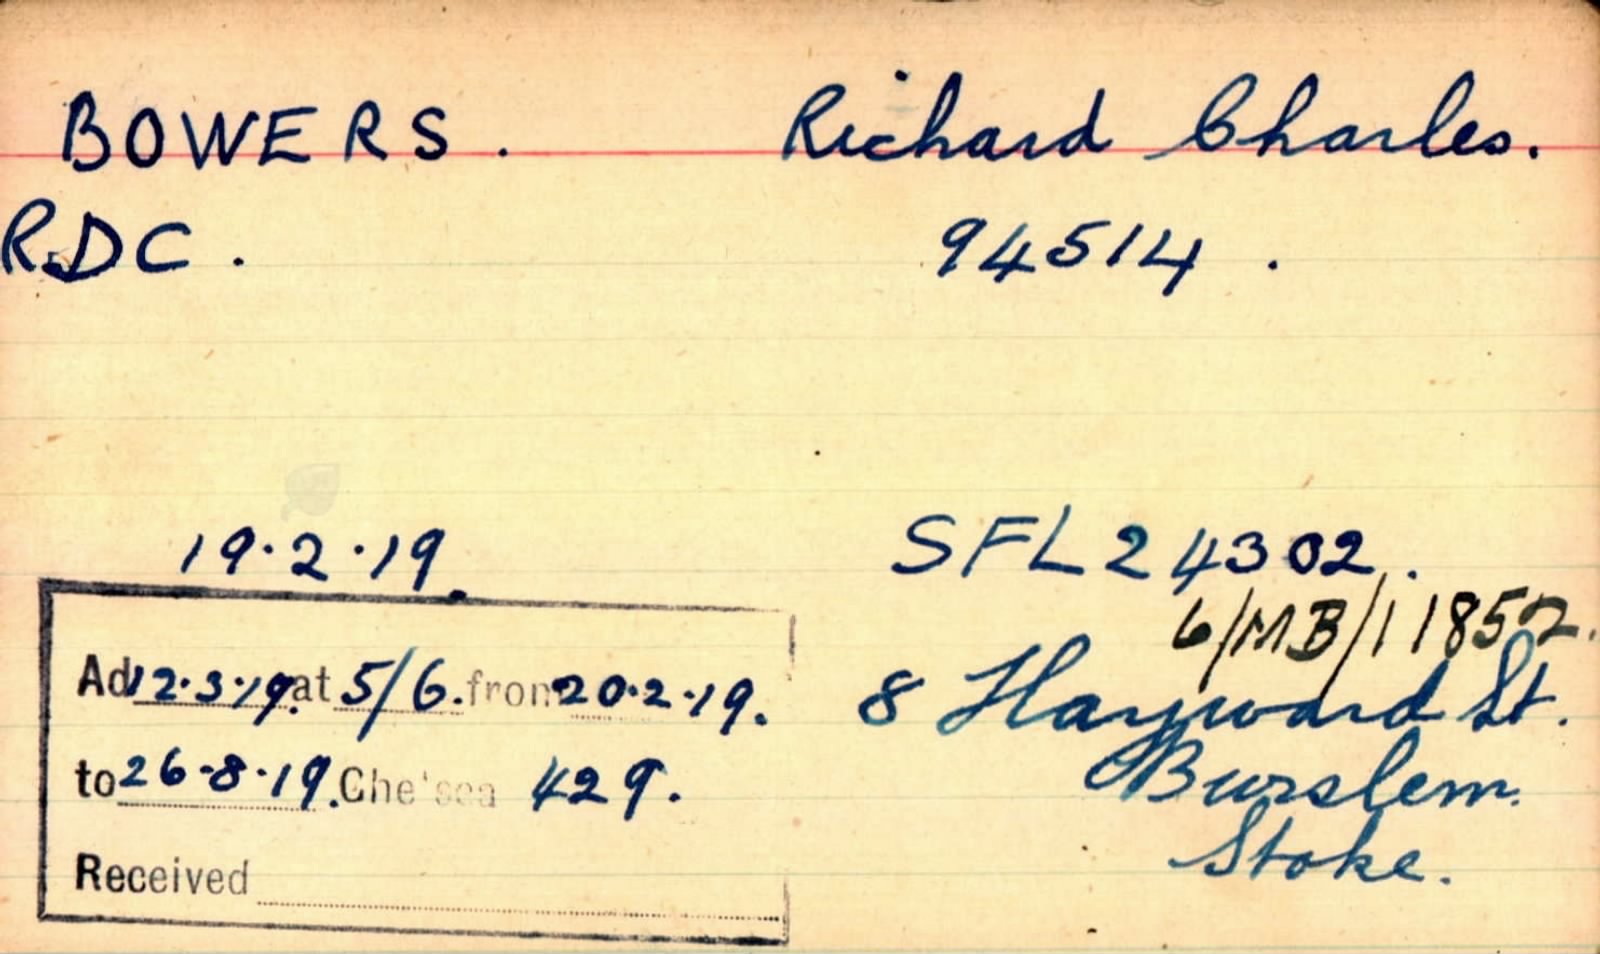 BOWERS. Richard Charles.
RDC. 94514.
19.2.19.
SFL 24302.
6/MB/11852.
Ad 12.3.19. at 5/6. from 20.2.19.
to 26-8-19. Chelsea 429.
Received
8 Hayward St.
Burslem.
Stoke.